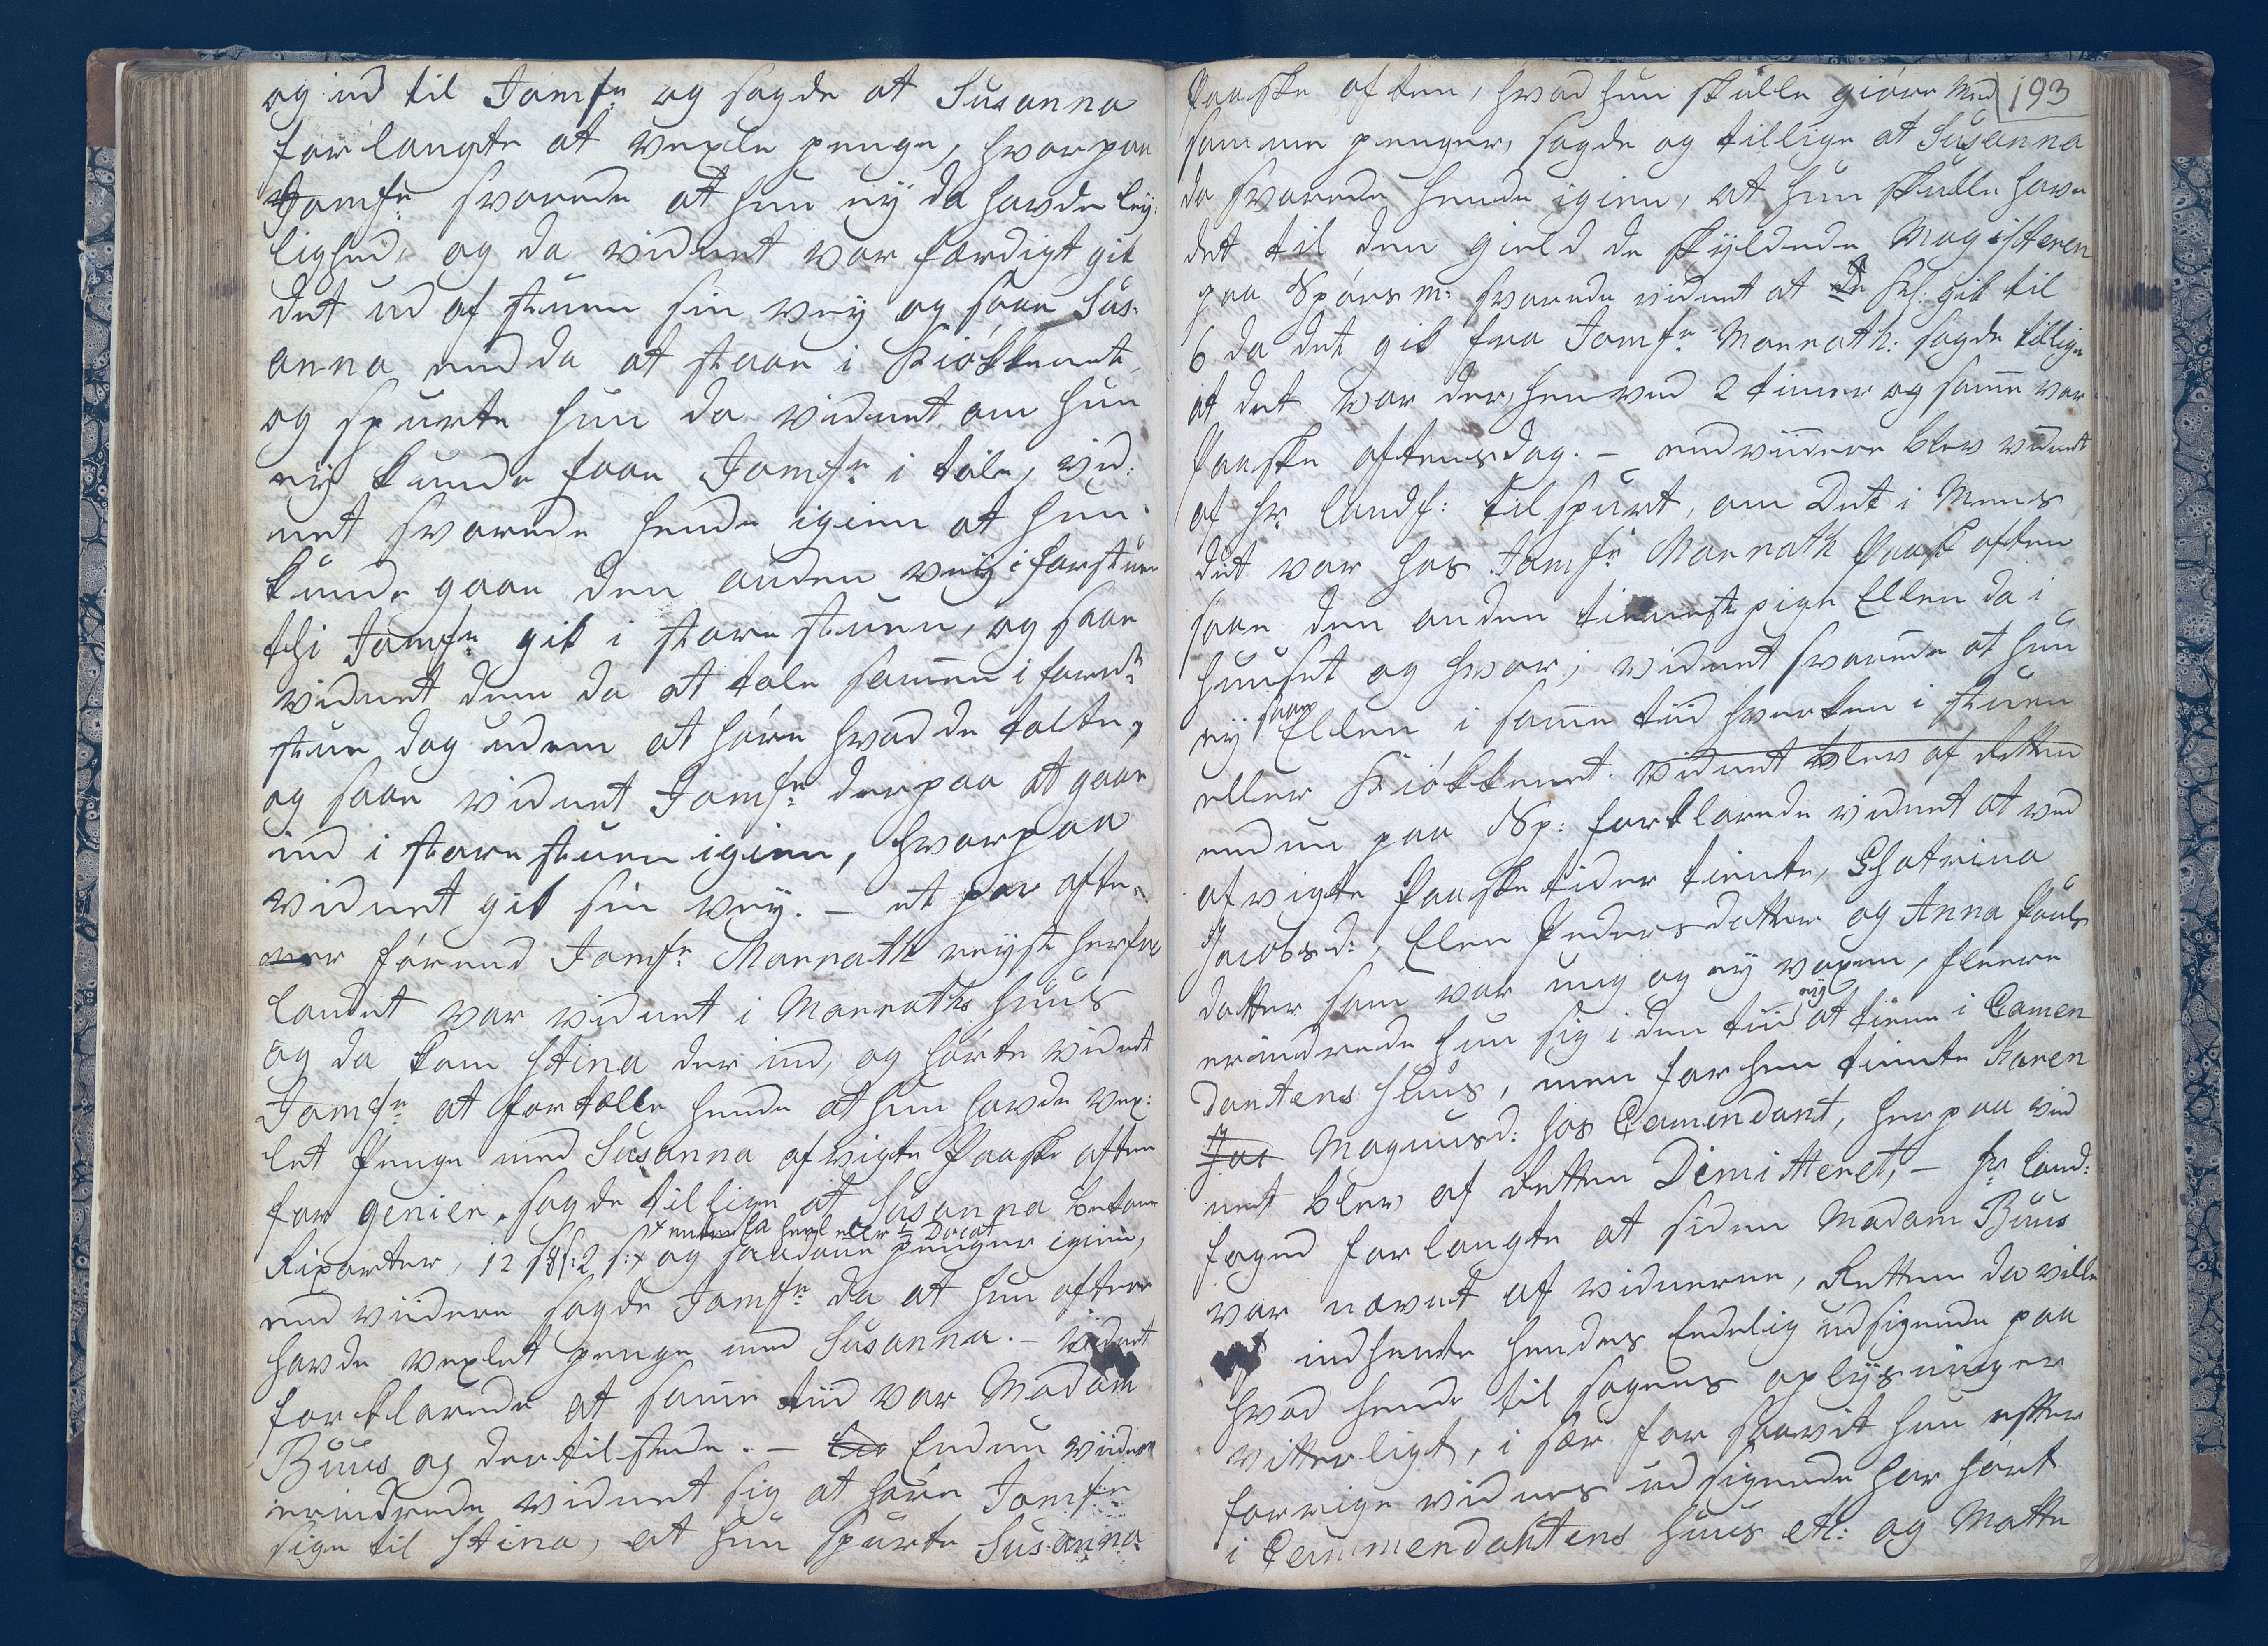 og ind til Jomfr og sagde at Susanna
forlangte at vexle penge, hvorpaa
Jomfr svarede at hun eÿ da havde leÿ,
lighed, og da vidnet var færdigt gik
det ud af stuen sin veÿ og saae Sus:
anna endda at staae i Kiökkenet
og spurte hun da vidnet om hun
eÿ kunde faae Jomfr i tale, vid:
net svarede hende igien at hun
kunde gaae den anden veÿ i forstuen
thi Jomfr gik i store stuen, og saae
vidnet dem da at tale sammen i forn:
stue dog uden at höre hvad de talte,
og saae vidnet Jomfr derpaa at gaae
ind i store stuen igien, hvorpaa
vidnet gik sin veÿ. – et par afte,
ner förend Jomfr Marrath reÿste herfra
landet var vidnet i Marraths huus
og da kom Stina der ind, og hörte vidnet
Jomfr at fortælle hende at hun havde vex:
let Penge med Susanna afvigte Paaske aften
for genier, sagde tillige at Susanna bekom
Rixorter, 12 s: 2 s: og saadane penger igien,
end viidere sagde Jomfr da at hun oftere
havde vexlet penge med Susanna. – vidnet
forklarede at samme tiid var Madam
Buus og der tilstede. – Endnu viidere
erindrede vidnet sig at höre Jomfr
sige til Stina, at hun spurte Susanna
193
Paaske aften, hvad hun skulle giöre med
samme penger, sagde og tillige at Susanna
da svarede hende igien, at hun skulle have
det til den gield de skÿldede Magisteren
paa Spörsm: svarede vidnet at Kl. gik til
6 da det gik fra Jomfr Marrath: sagde tillige
at det var der henved 2 timer og samme var
Paaske aftensdag. – endviidere blev vidnet
af Hr landf: tilspurt, om Det i Mens
det var hos Jomfr Marrath Paask aften
saae den anden tieneste pige Ellen da i
huuset og hvor; vidnet svarede at hun
eÿ saae Ellen i samme tiid hverken i stuen
eller Kiökkenet. vidnet blev af Retten
endnu paa Sp: forklarede vidnet at ved
afvigte Paaske tider tiente, Chatrina
Jacobsd:, Elen Pedersdatter og Anna Pouls
datter som var ung og eÿ voxen, fleere
erindrede hun sig i den tiid eÿ at tiene i Comen
dantens Huus, men forhen tiente Karen
Jac Magnusd: hos Comendant, herpaa vid
net blev af Retten Dimitteret, – Hr land:
foged forlangte at siden Madam Buus
var nævnt af vidnerne, Retten da ville
indhente hendes Eedelig udsigende paa
hvad hende til sagens oplÿsninger
vitterligt, i sær for saavit hun efter
forrige vidnes udsigende har hört
i Commendantens huus etc: og Mette